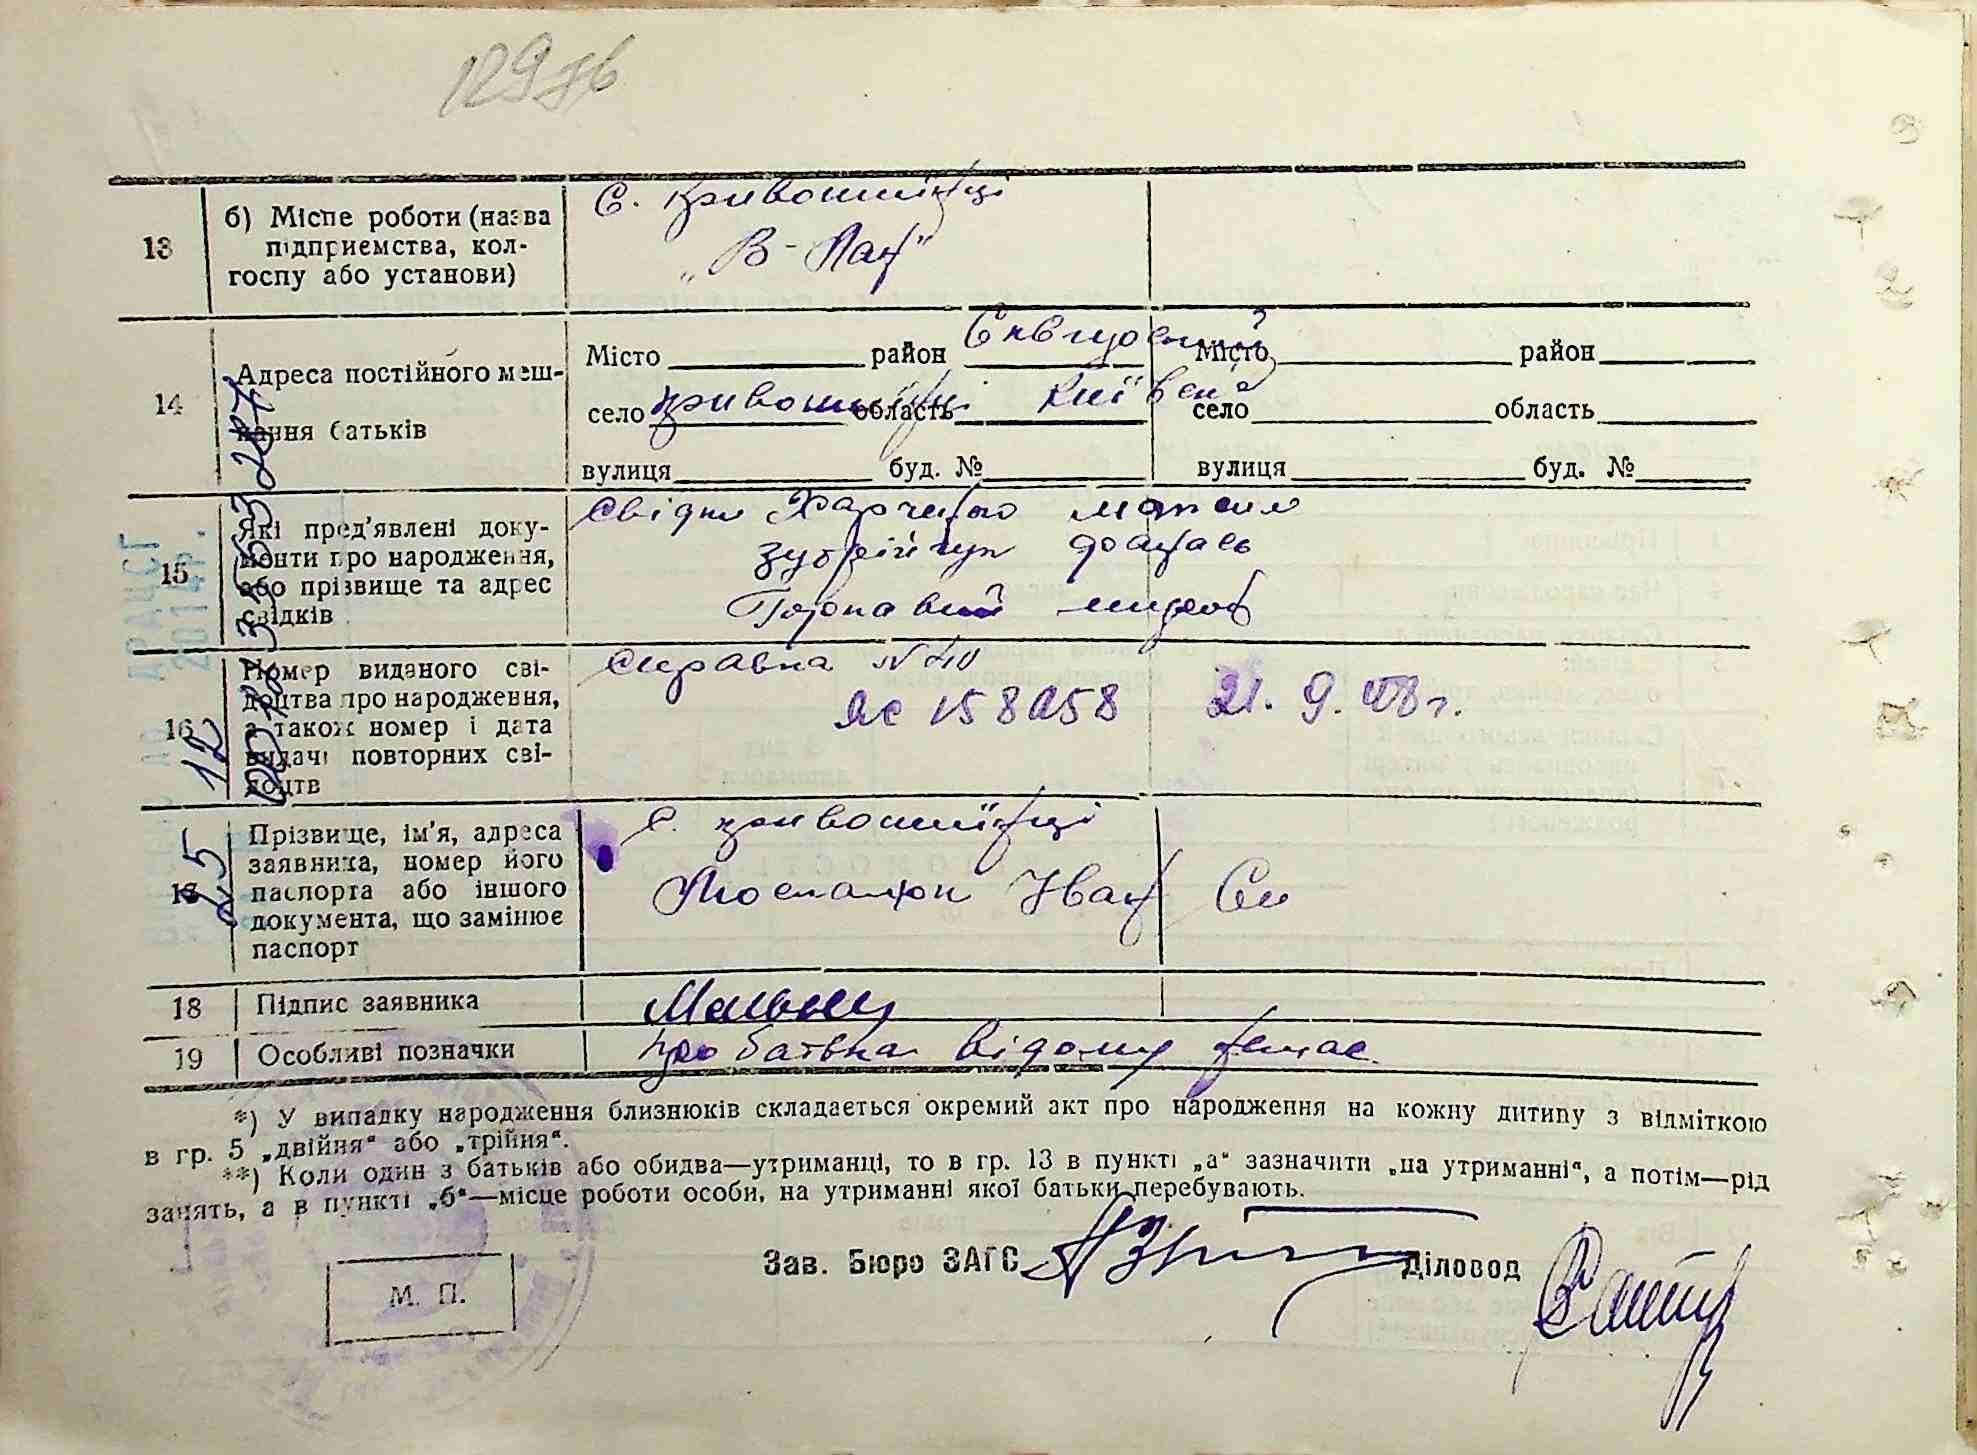 129зв
13
б) Місце роботи (назва
підприємства, кол-
госпу або установи)
С. Кривошиїнці
„В-Лан"
14
Адреса постійного меш-
кання батьків
Місто район Сквирський
село Кривошиїнці область Київська
вулиця буд. №
Місто район
село область
вулиця буд. №
15
Які пред'явлені доку-
менти про народження,
або прізвище та адрес
свідків
Свідки Харченко Максим
Панас
16
Номер виданого сві-
доцтва про народження,
а також номер і дата
видачі повторних сві-
доцтв
Справка N 40
21. 9.
17
Прізвище, ім'я, адреса
заявника, номер його
паспорта або іншого
документа, що замінює
паспорт
с. Кривошиїнці
Іван
18
Підпис заявника
19
Особливі позначки
Про батька відому немає.
*) У випадку народження близнюків складається окремий акт про народження на кожну дитину з відміткою
в гр. 5 „двійня" або „трійня".
**) Коли один з батьків або обидва—утриманці, то в гр. 13 в пункті „а" зазначити „на утриманні", а потім—рід
занять, а в пункті „б"—місце роботи особи, на утриманні якої батьки перебувають.
Зав. Бюро ЗАГС
Діловод
М. П.